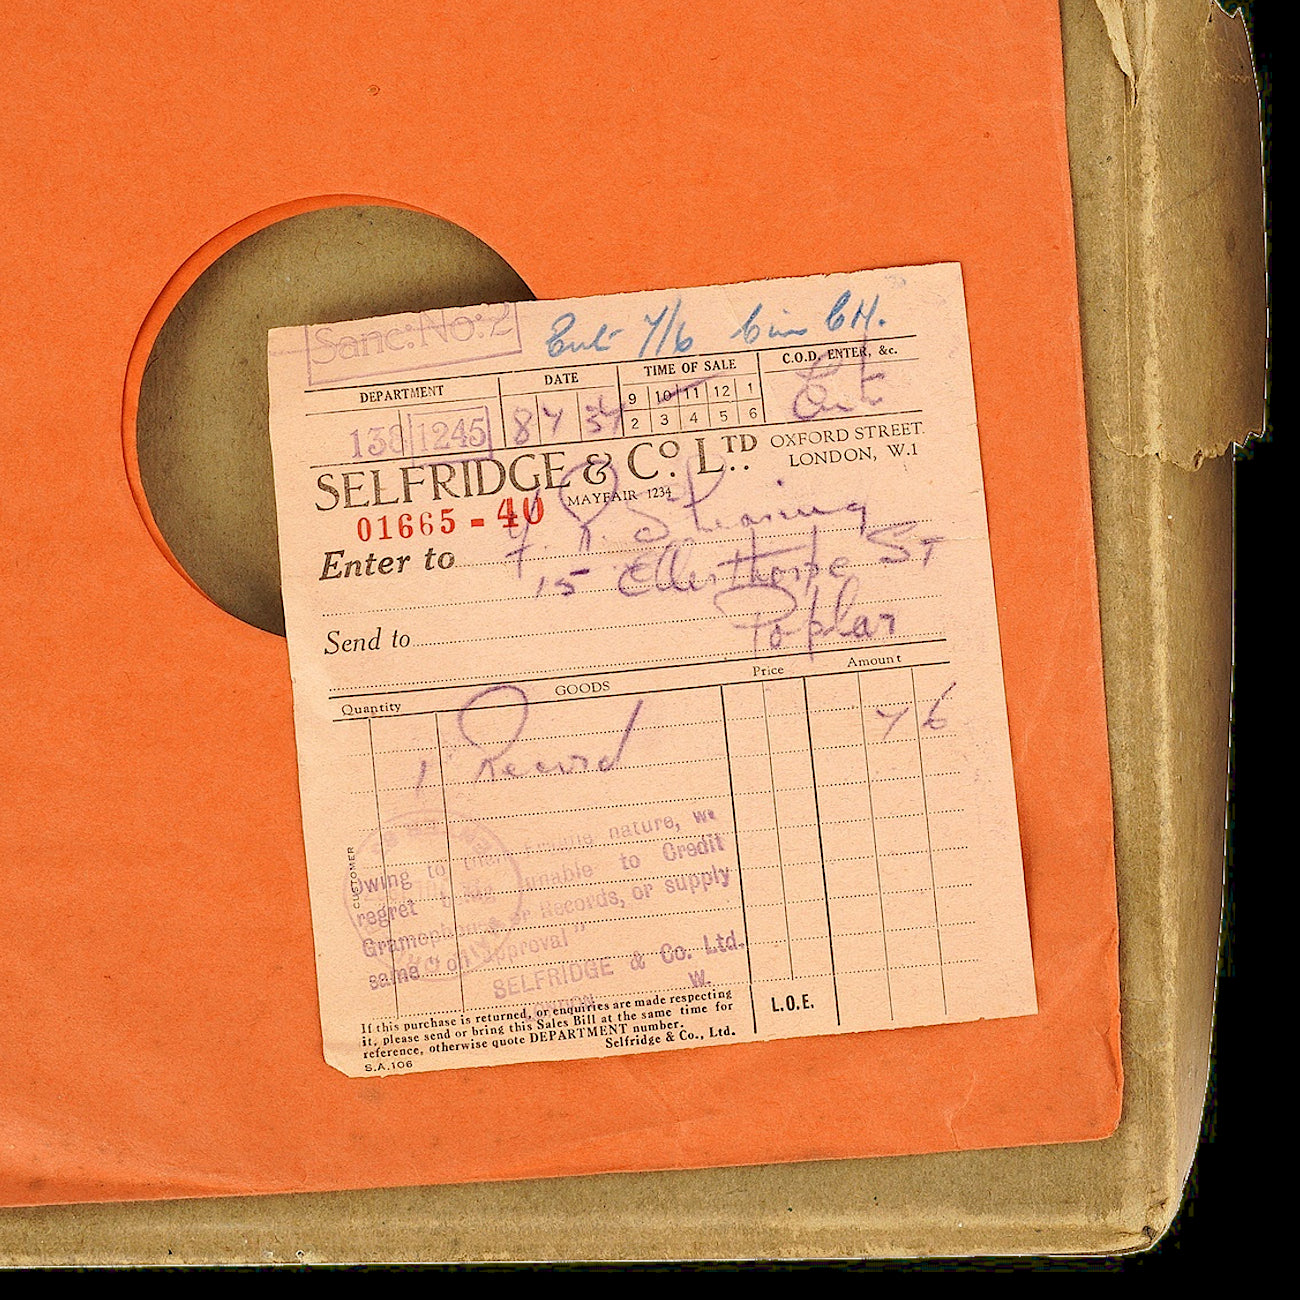 Sanc: No: 2
Ent 7/6
C.H.
DEPARTMENT DATE TIME OF SALE C.O.D. ENTER, &c.
9 10 11 12 1
138 1245 8 7 34 2 3 4 5 6
SELFRIDGE & Co. LTD. OXFORD STREET
LONDON, W.1
MAYFAIR 1234
01665 - 40
Enter to
15 Ellerthorpe ST
Poplar
Send to
Quantity GOODS Price Amount
1 Record 7 6
CUSTOMER
Owing to their fragile nature, we
regret being unable to Credit
Gramophones or Records, or supply
same "on approval"
SELFRIDGE & Co. Ltd.
LONDON W.
If this purchase is returned, or enquiries are made respecting
it, please send or bring this Sales Bill at the same time for
reference, otherwise quote DEPARTMENT number.
Selfridge & Co., Ltd.
L.O.E.
S.A.106